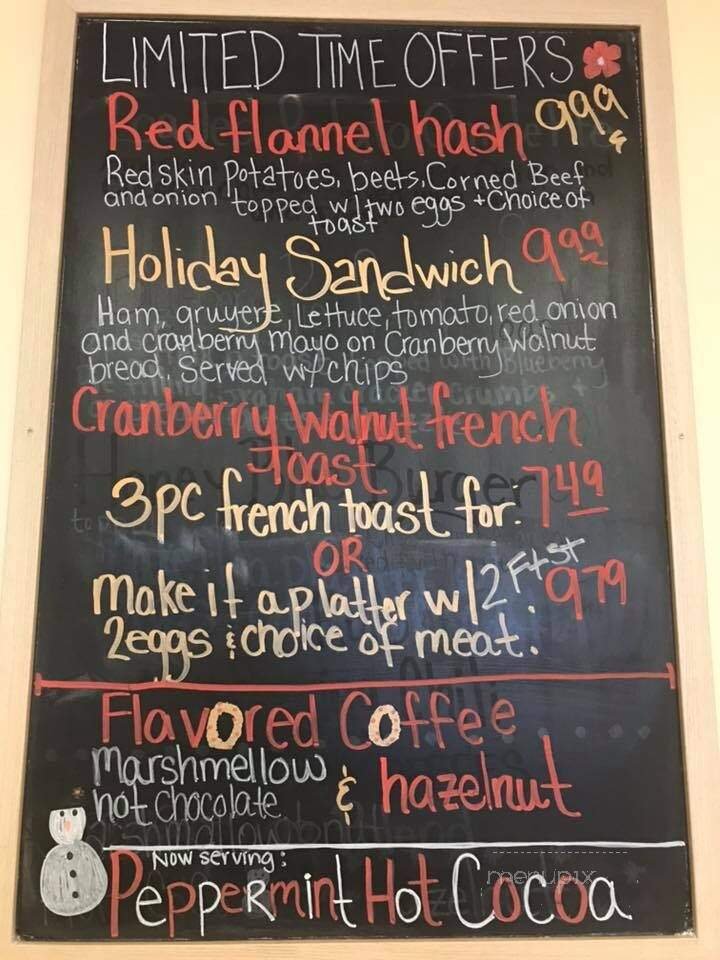 LIMITED TIME OFFERS
Red flannel hash 999
Redskin Potatoes, beets, Corned Beef
and onion topped w/ two eggs + Choice of
toast
Holiday Sandwich 999
Ham, gruyere, Lettuce, tomato, red onion
and cranberry mayo on Cranberry Walnut
bread. Served w/ chips
Cranberry Walnut french
toast
3pc french toast for: 749
OR
make it a platter w/ 2 Ftst 979
2eggs & choice of meat.
Flavored Coffee
Marshmellow
hot chocolate & hazelnut
Now serving:
Peppermint Hot Cocoa
menupix